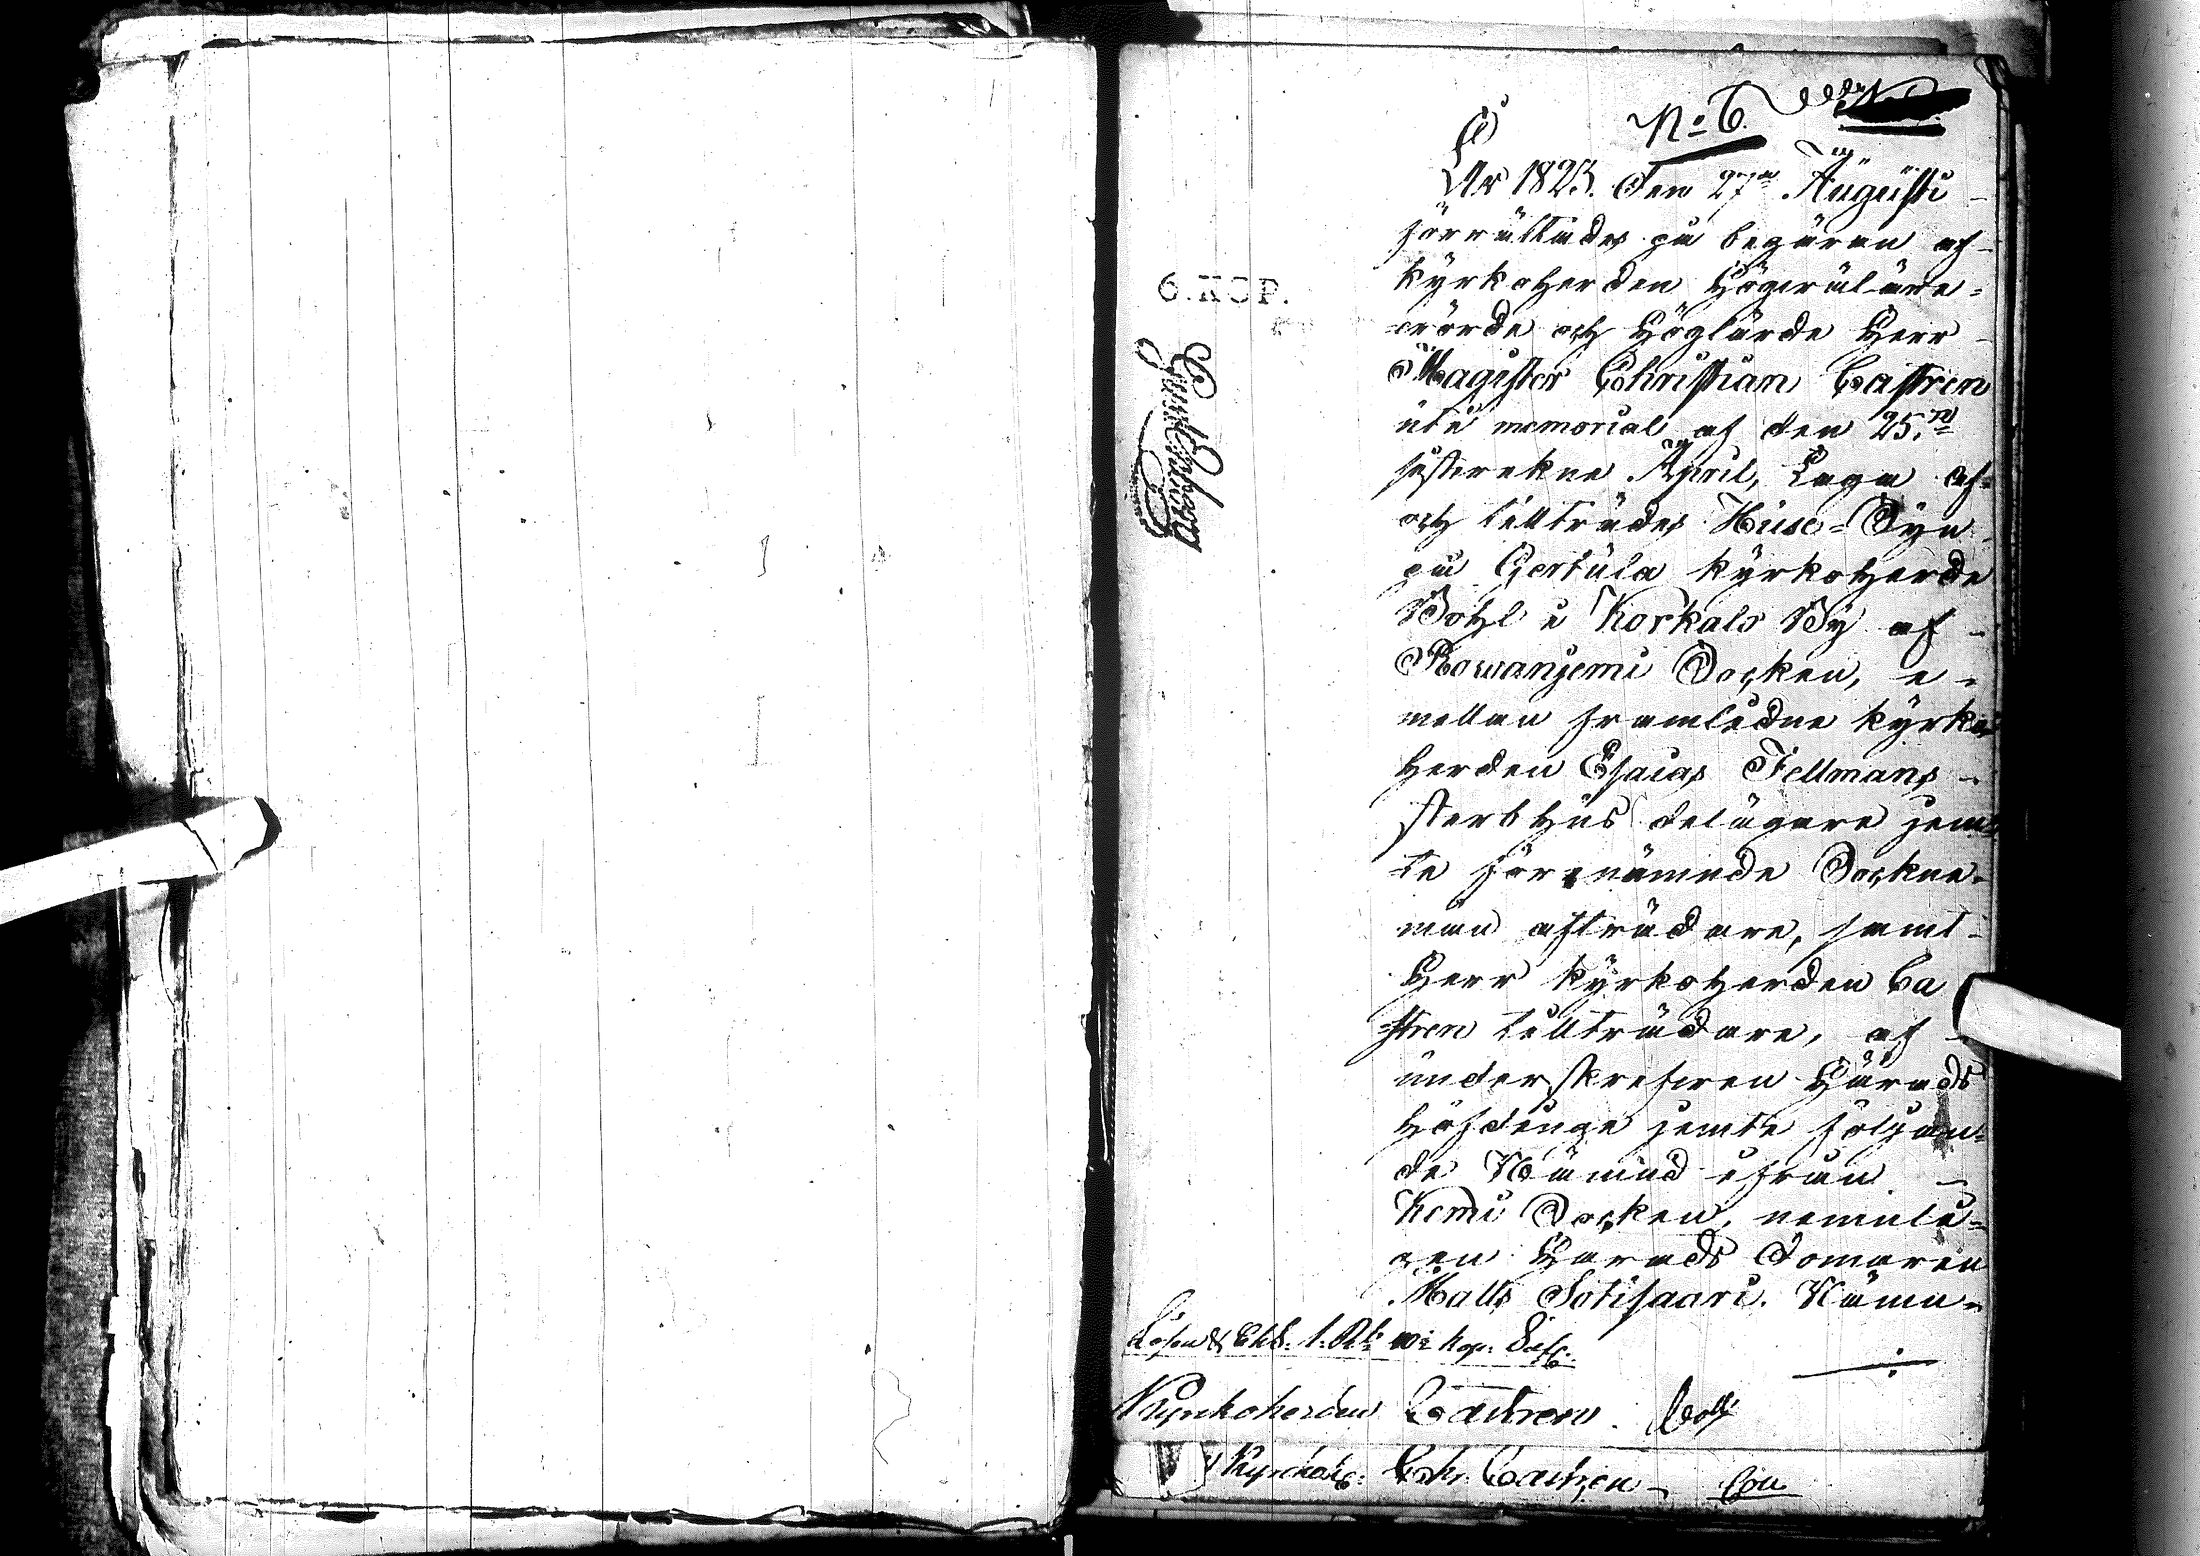 No 6.
År 1823. Den 27de Augusti
förrättades på begäran af
kyrkoherden Högväläre-
vörde och Höglärde Herr
Magister Christian Castrén
uti memorial af den 25.te
sistvekne April, Laga af-
och tillträdes Huse-Syn
på Gertula kyrkoherde
Bohl i Korkalo By af
Rowanjemi Socken, e-
mellan framledne kyrko-
herden Esaias Fellmans
sterbhus delägare jem-
te förenämnde Sockne-
män afträdare, samt
Herr kyrkoherden Ca
stren tillträdare, af
underskrefven Härads
Höfdinge jemte följan-
de Nämnd ifrån
Kemi Socken, nemli-
gen Härads Domaren
Matts Sotisaari. Nämn-
6. KOP.
Lösen &
Kyrkoherden Castren.
Kyrkoh: Chr. Castren